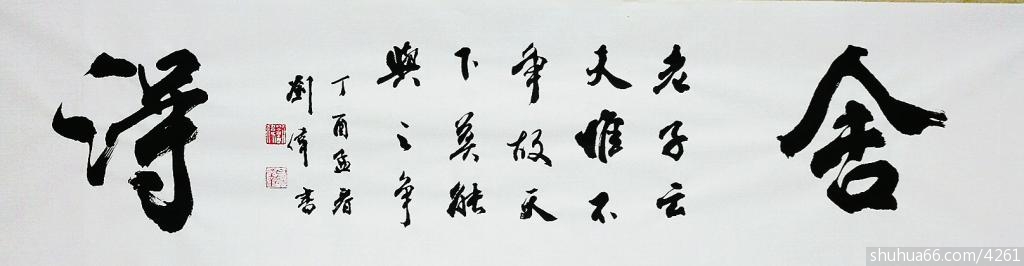 舍
老子云
夫惟不
争故天
下莫能
與之争
丁酉孟春
劉偉書
得
shuhua66.com/4261